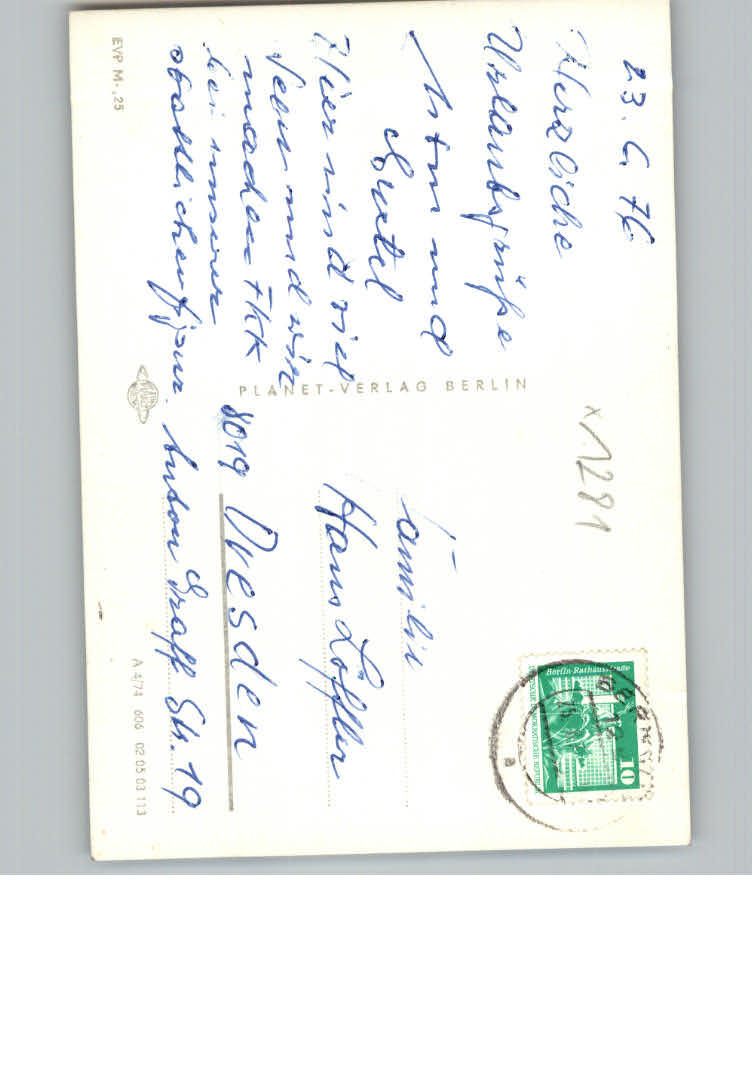 23. 6. 76
Herzliche
Urlaubsgrüße
und
Gretel
Hier sind viel
und wir
machen FKK
bei unserer
stattlichen Figur.
EVP M -,25
PLANET-VERLAG BERLIN
x1281
Berlin-Rathausstraße
10
DEUTSCHE DEMOKRATISCHE REPUBLIK
a
Familie
Hans Löffler
8019 Dresden
Anton Graff Str. 19
A 4/74 606 02 05 03 113